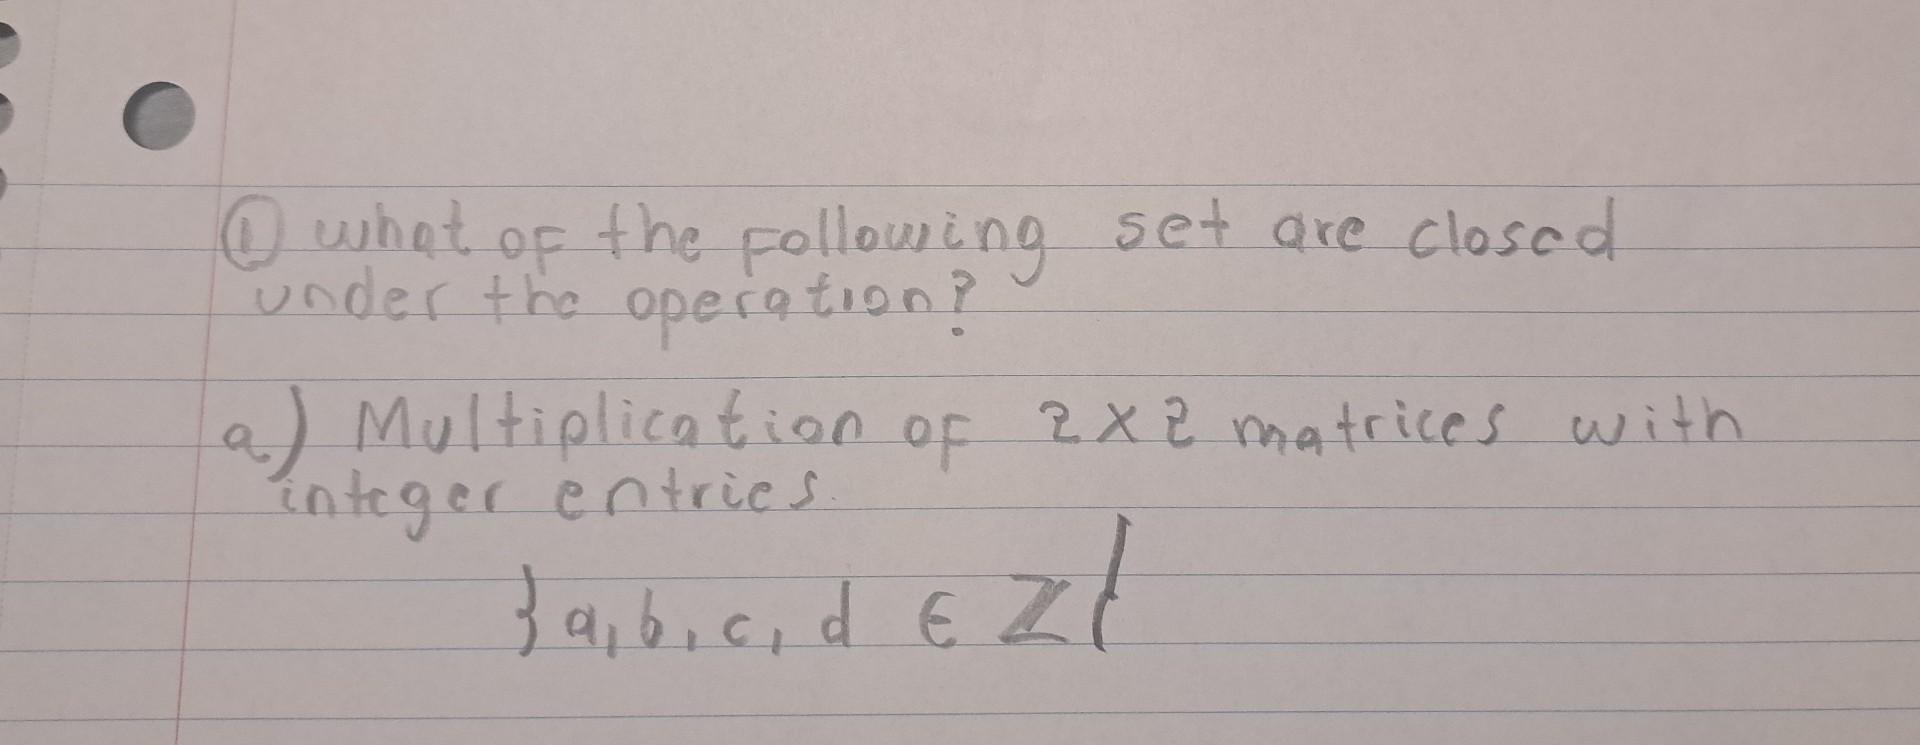 ① what of the following set are closed
under the operation?
a) Multiplication of 2x2 matrices with
integer entries.
}a, b, c, d ∈ ℤ{